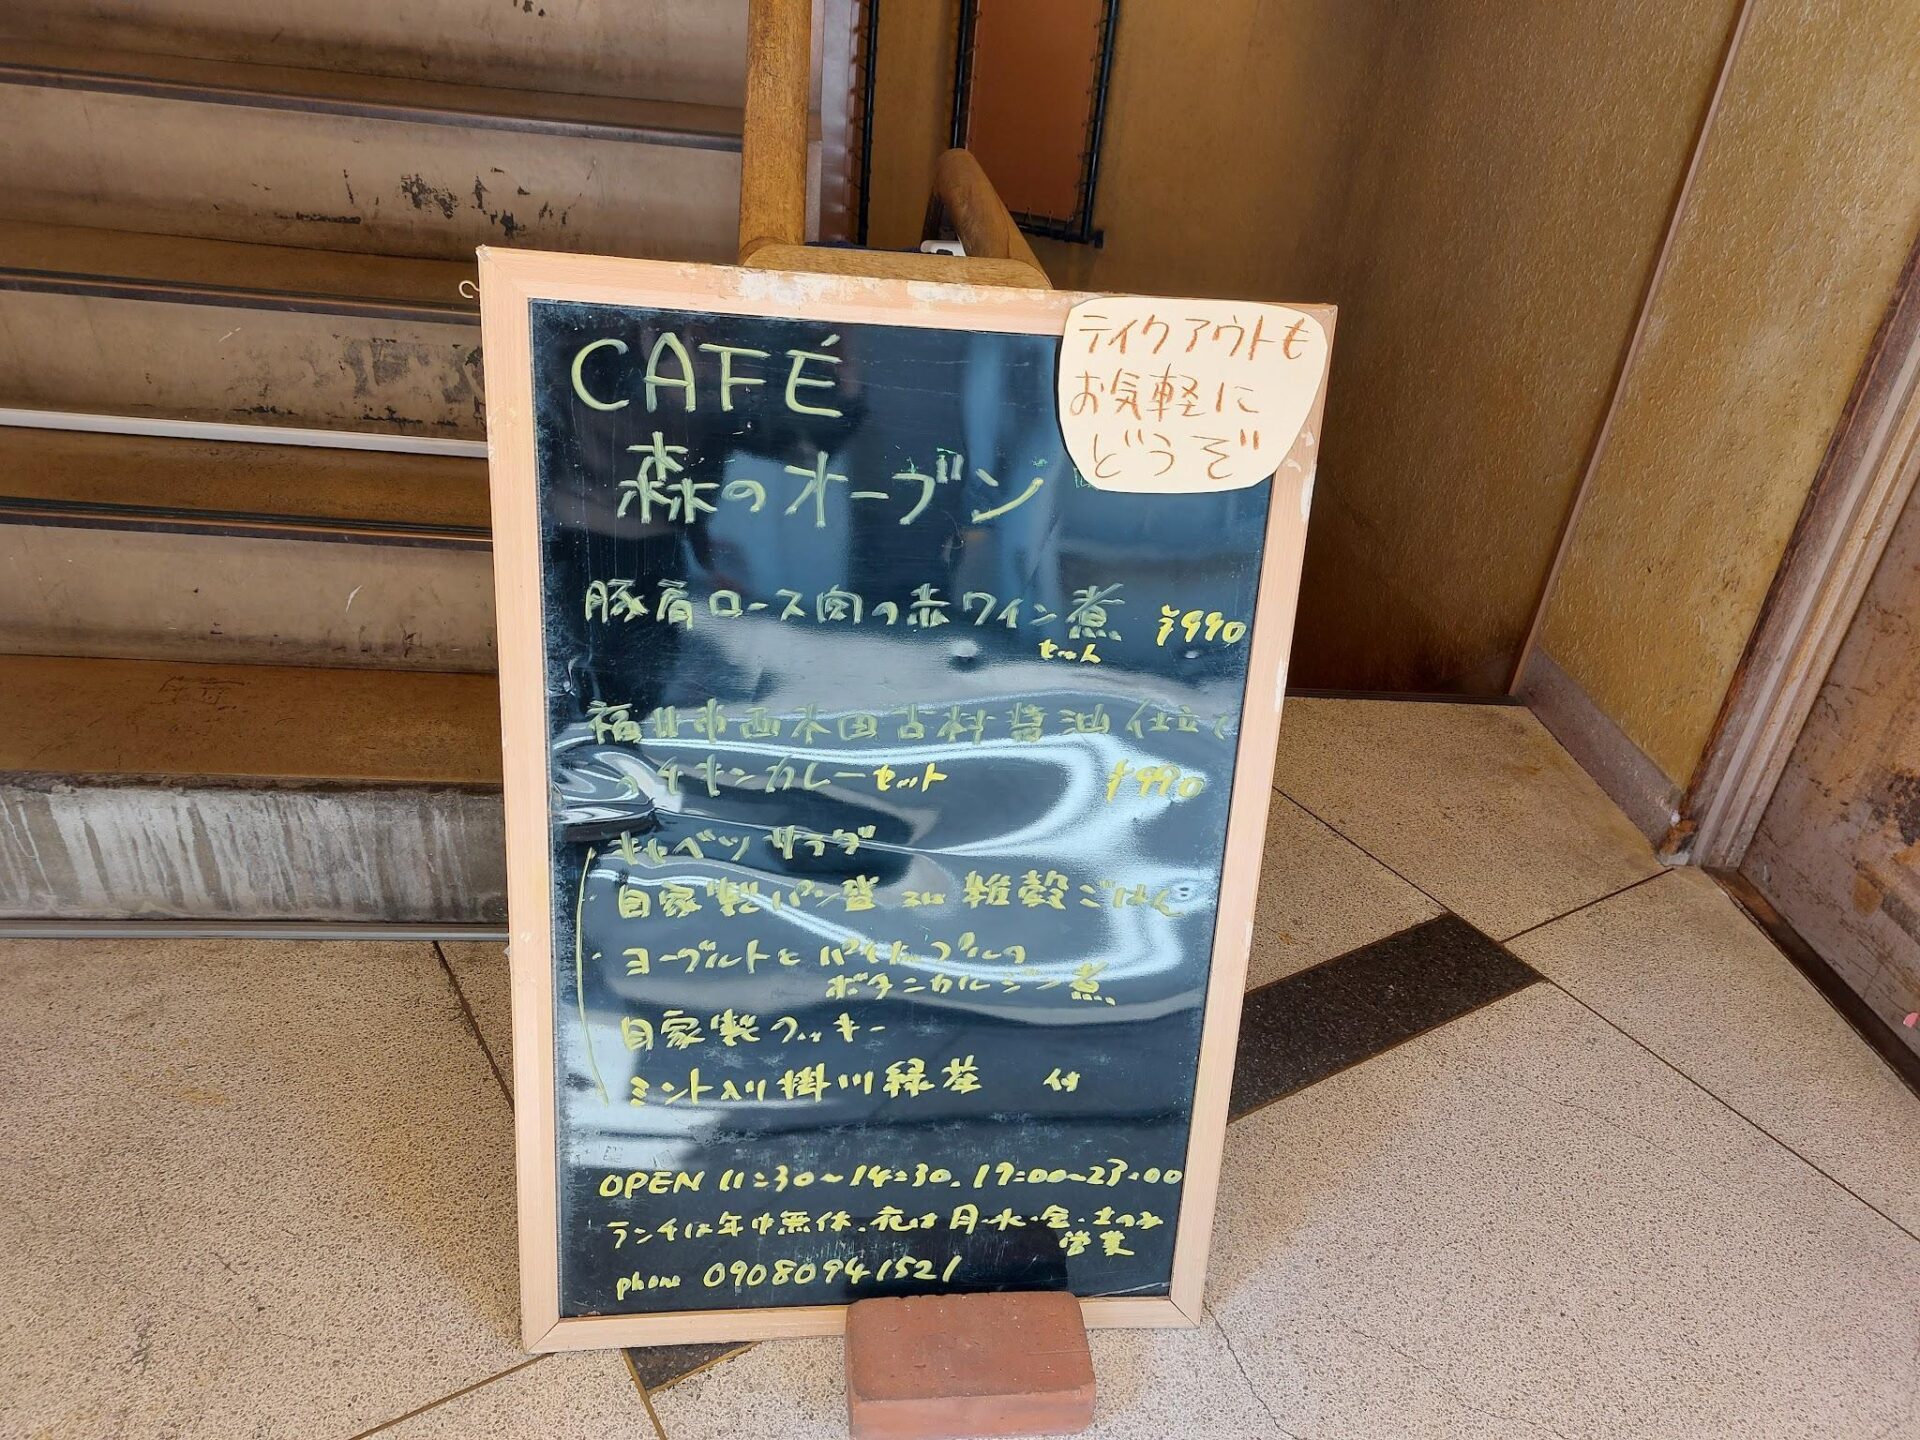 CAFÉ
テイクアウトも
お気軽に
どうぞ
森のオーブン
豚肩ロース肉の赤ワイン煮 ¥990
セット
福井市西木田古村醤油仕立て
のチキンカレーセット ¥990
キャベツサラダ
自家製パン or 雑穀ごはん
ヨーグルトとパイナップルの
ボタニカルジン煮
自家製クッキー
ミント入り掛川緑茶 付
OPEN 11:30~14:30. 17:00~23:00
ランチは年中無休、夜は月・水・金・土のみ
営業
phone 09080941521